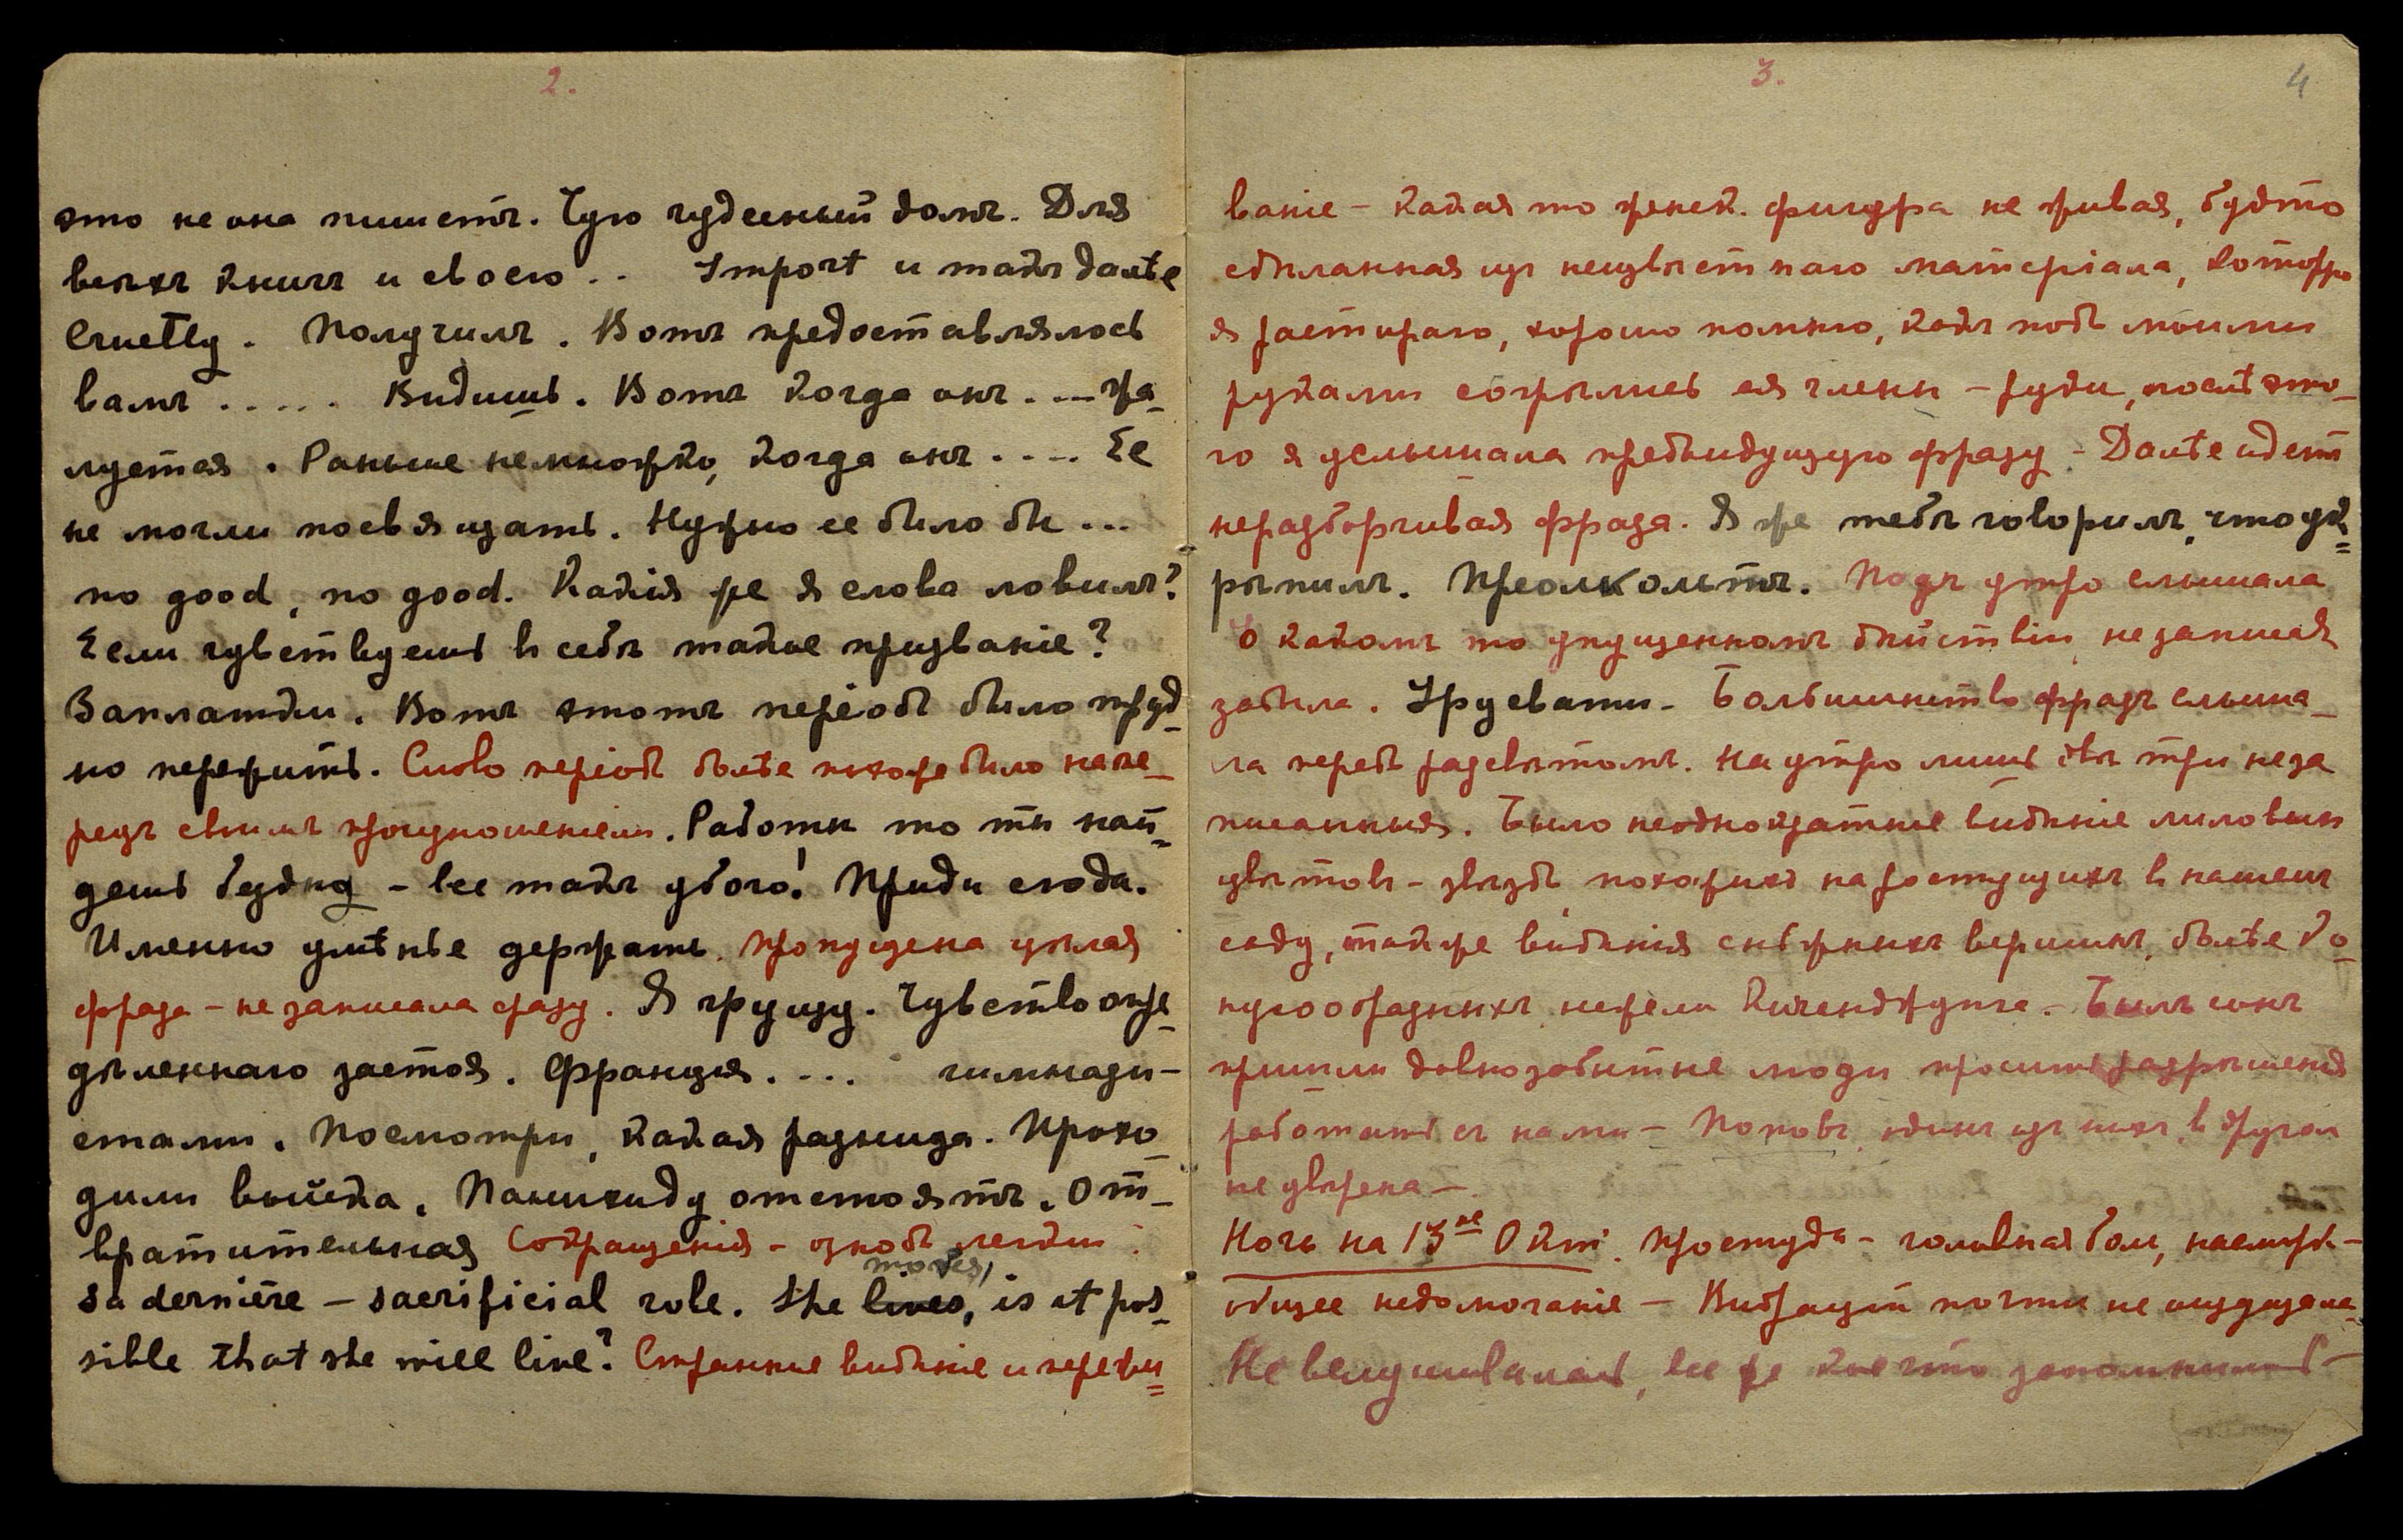 2.
это не она пишетъ. Чую чудесный домъ. Для
всѣхъ книгъ и своего.. Import и такъ далѣе
Cruelly. Получилъ. Вотъ предоставлялось
вамъ ..... Видишь. Вотъ когда онъ ... жа-
луется. Раньше немножко, когда онъ .... Ее
не могли посвящать. Нужно ее было бы ...
no good, no good. Какія же я слова ловилъ?
Если чувствуешь в себѣ такое призваніе?
Заплатки. Вотъ этотъ періодъ было труд-
но пережить. Слово періодъ болѣе похоже было напе-
редъ своимъ произношеніемъ. Работы то ты най-
дешь бездну – все такъ убого! Приди сюда.
Именно умѣнье держать. пропущена цѣлая
фраза – не записала сразу. Я грущу. Чувство опре-
дѣленнаго застоя. Франція. ... гимнази-
стами. Посмотри, какая разница. Прохо-
дили войска. Панихиду отстоятъ. От-
вратительная Сокращенія – ознобъ легкій.
sa dernière – sacrificial role. She lives, moves, is it pos-
sible that she will live? Странное видѣніе и пережи-
3. 4
ваніе – какая то женск. фигура не живая, будто
сдѣланная изъ неизвѣстнаго матеріала, которую
я растираю, хорошо помню, какъ подъ моими
руками согрѣлись ея члены – руки, послѣ это-
го я услышала предыдущую фразу – Далѣе идетъ
неразборчивая фраза. Я же тебѣ говорилъ, что ук-
рѣпилъ. Преолкомътъ. Подъ утро слышала
о какомъ то упущенномъ дѣйствіи, не записавъ
забыла. Урусвати – Большинство фразъ слыша-
ла передъ разсвѣтомъ. На утро лишь двѣ три неза
писанныя. Было неоднократное видѣніе лиловыхъ
цвѣтовъ – звѣздъ похожихъ на растущихъ в нашемъ
саду, также видѣнія снѣжныхъ вершинъ, болѣе ко-
нусообразныхъ, нежели Кинченджунга – Былъ сонъ
пришли давнозабытые люди просить разрѣшенія
работать съ нами – Поповъ, одинъ изъ нихъ, в другом
не увѣрена –
Ночь на 13ое Окт. Простуда – головная боль, насморкъ –
общее недомоганіе – Вибрацій почти не ощущала
Не вслушивалась, все же кое что запомнилось –